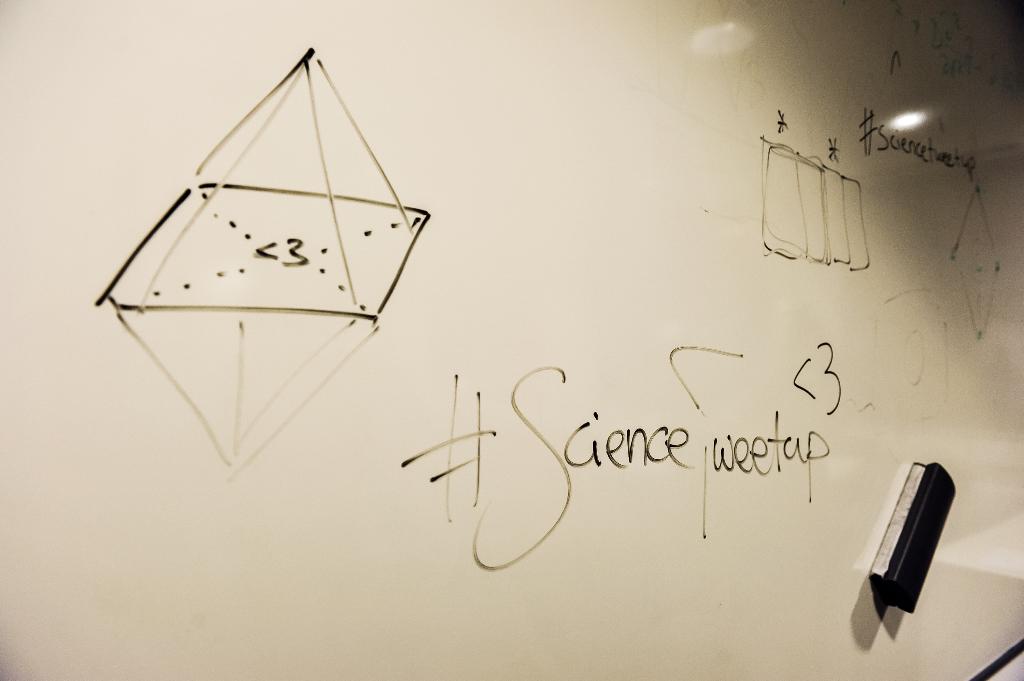 * *
#Sciencetweetup
<3
<3
#ScienceTweetup